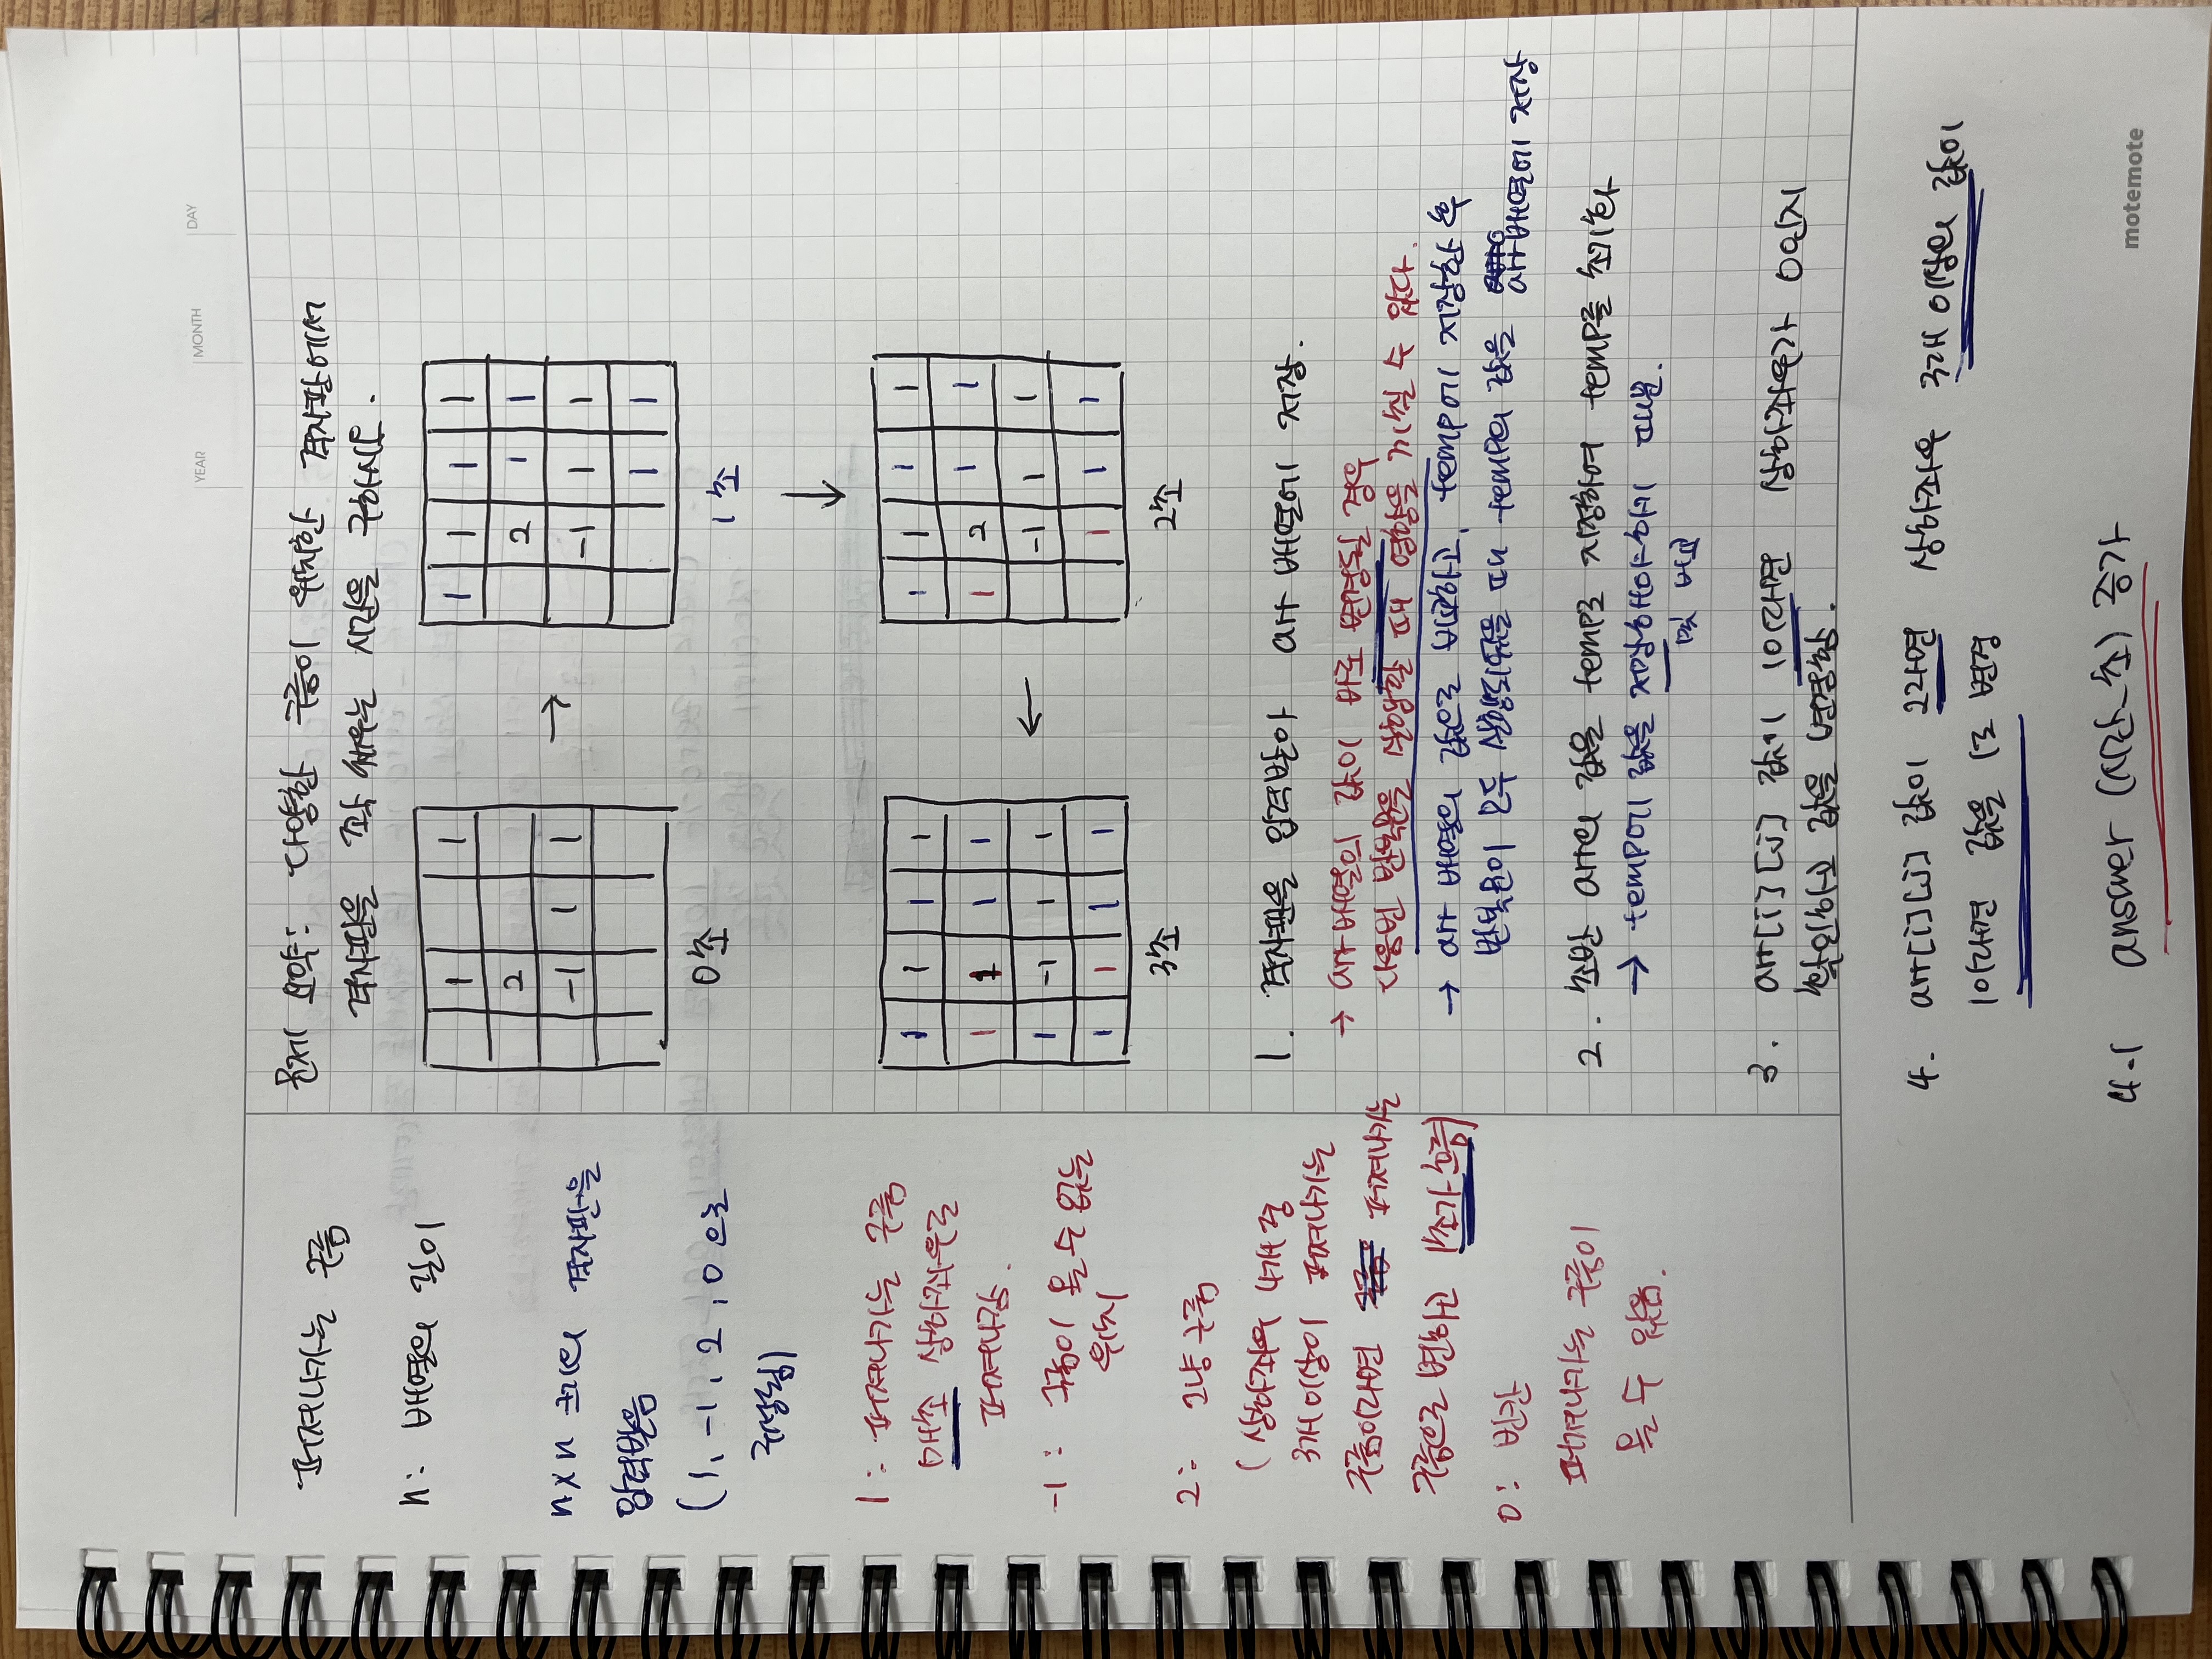 YEAR MONTH DAY
퍼져나가는 구름
n: 배열의 길이
n x n 크기의 격자판을
입력받음
(1, -1, 2, 0 으로
구성됨)
1: 퍼져나가는 구름
매초 상하좌우로
퍼져나감.
-1: 구름이 올 수 없는
위치
2: 그냥 구름
(상하좌우 4개 중
3개 이상이 퍼져나가는
구름이라면 퍼져나가는
구름으로 변하고 1초가 흐름)
0: 빈칸
퍼져나가는 구름이
올 수 있음.
문제 요약: 다양한 구름이 위치한 격자판에서
격자판을 꽉 채우는 시간을 구하시오.
1 1
2
-1 1 1
0초
→
1 1 1 1
2 1 1
-1 1 1
1 1
1초
↓
1 1 1 1
1 2 1 1
-1 1 1
1 1 1
2초
←
1 1 1 1
1 1 1 1
1 -1 1 1
1 1 1 1
3초
1. 격자판을 입력받아 arr 배열에 저장.
→ arr 배열의 값이 바로 변경될 경우
다음번 반복문을 실행할 때 영향을 끼칠 수 있다.
→ arr 배열의 값으로 비교하고, temp에 저장한 후
반복문이 모두 실행되었을 때 temp의 값을 arr배열에 저장
2. 초반 arr의 값을 temp로 지정하여 temp를 초기화
→ temp에 값을 저장해야하기 때문.
및 비교
3. arr[i][j] 값이 1이라면 상하좌우가 0인지
확인하고 값을 변경함.
4. arr[i][j] 값이 2라면 상하좌우 3개 이상의 값이
1이라면 값을 1로 변경
4-1 answer (시간_초) 증가
motemote